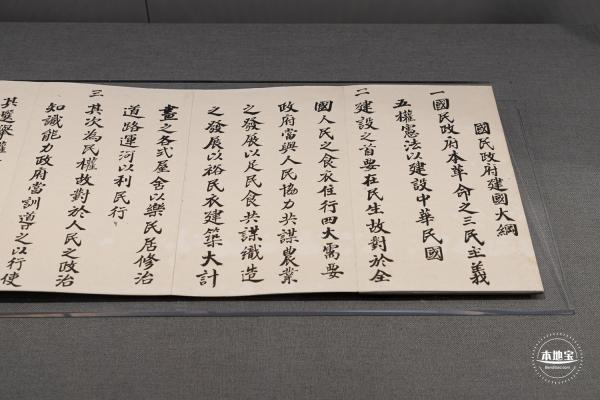 國民政府建國大綱
一 國民政府本革命之三民主義
五權憲法以建設中華民國
二 建設之首要在民生故對於全
國人民之食衣住行四大需要
政府當與人民協力共謀農業
之發展以足民食共謀織造
之發展以裕民衣建築大計
畫之各式屋舍以樂民居修治
道路運河以利民行
三 其次為民權故對於人民之政治
知識能力政府當訓導之以行使
其選舉權
本地宝
Bendibao.com